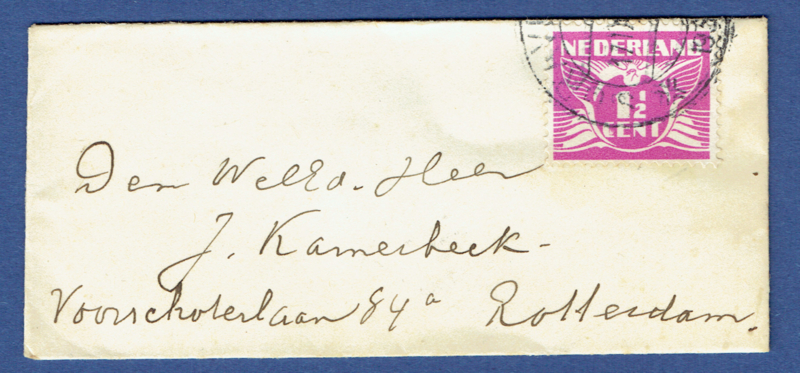 NEDERLAND
1½
CENT
Den WelEd. Heer
J. Kamerbeek-
Voorschoterlaan 84a Rotterdam.